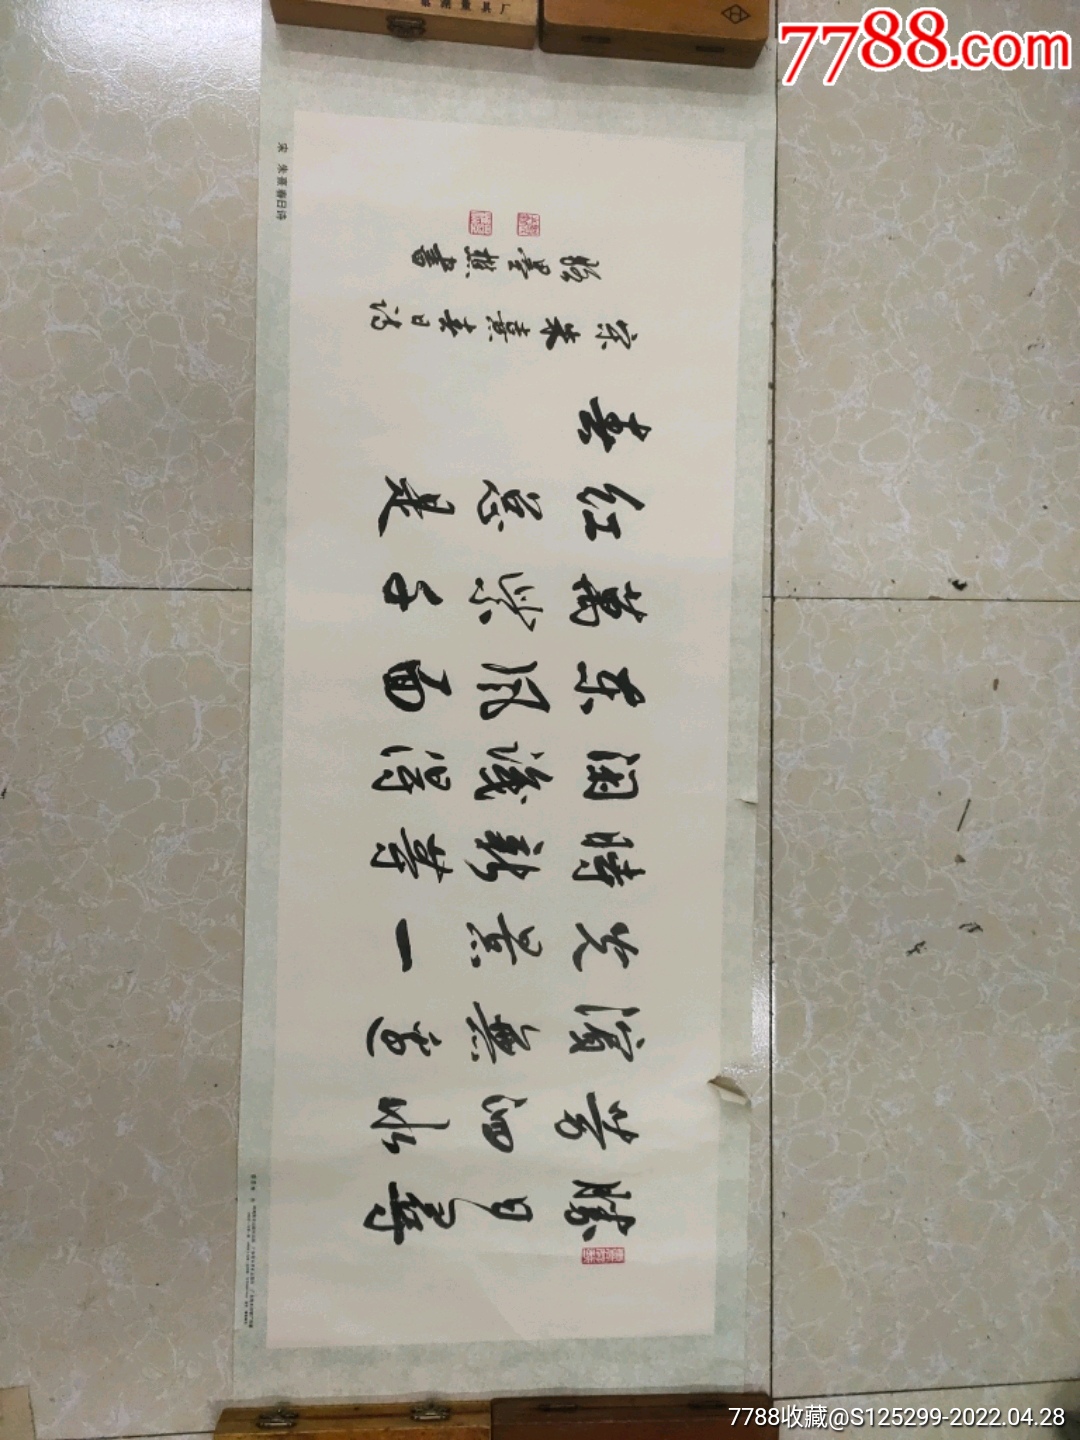 7788.com
湖量具厂
宋 朱熹春日诗
勝日尋
芳泗水
濱無邊
光景一
時新等
閑識得
東風面
萬紫千
紅總是
春
宋朱熹春日诗
書
7788收藏@S125299-2022.04.28